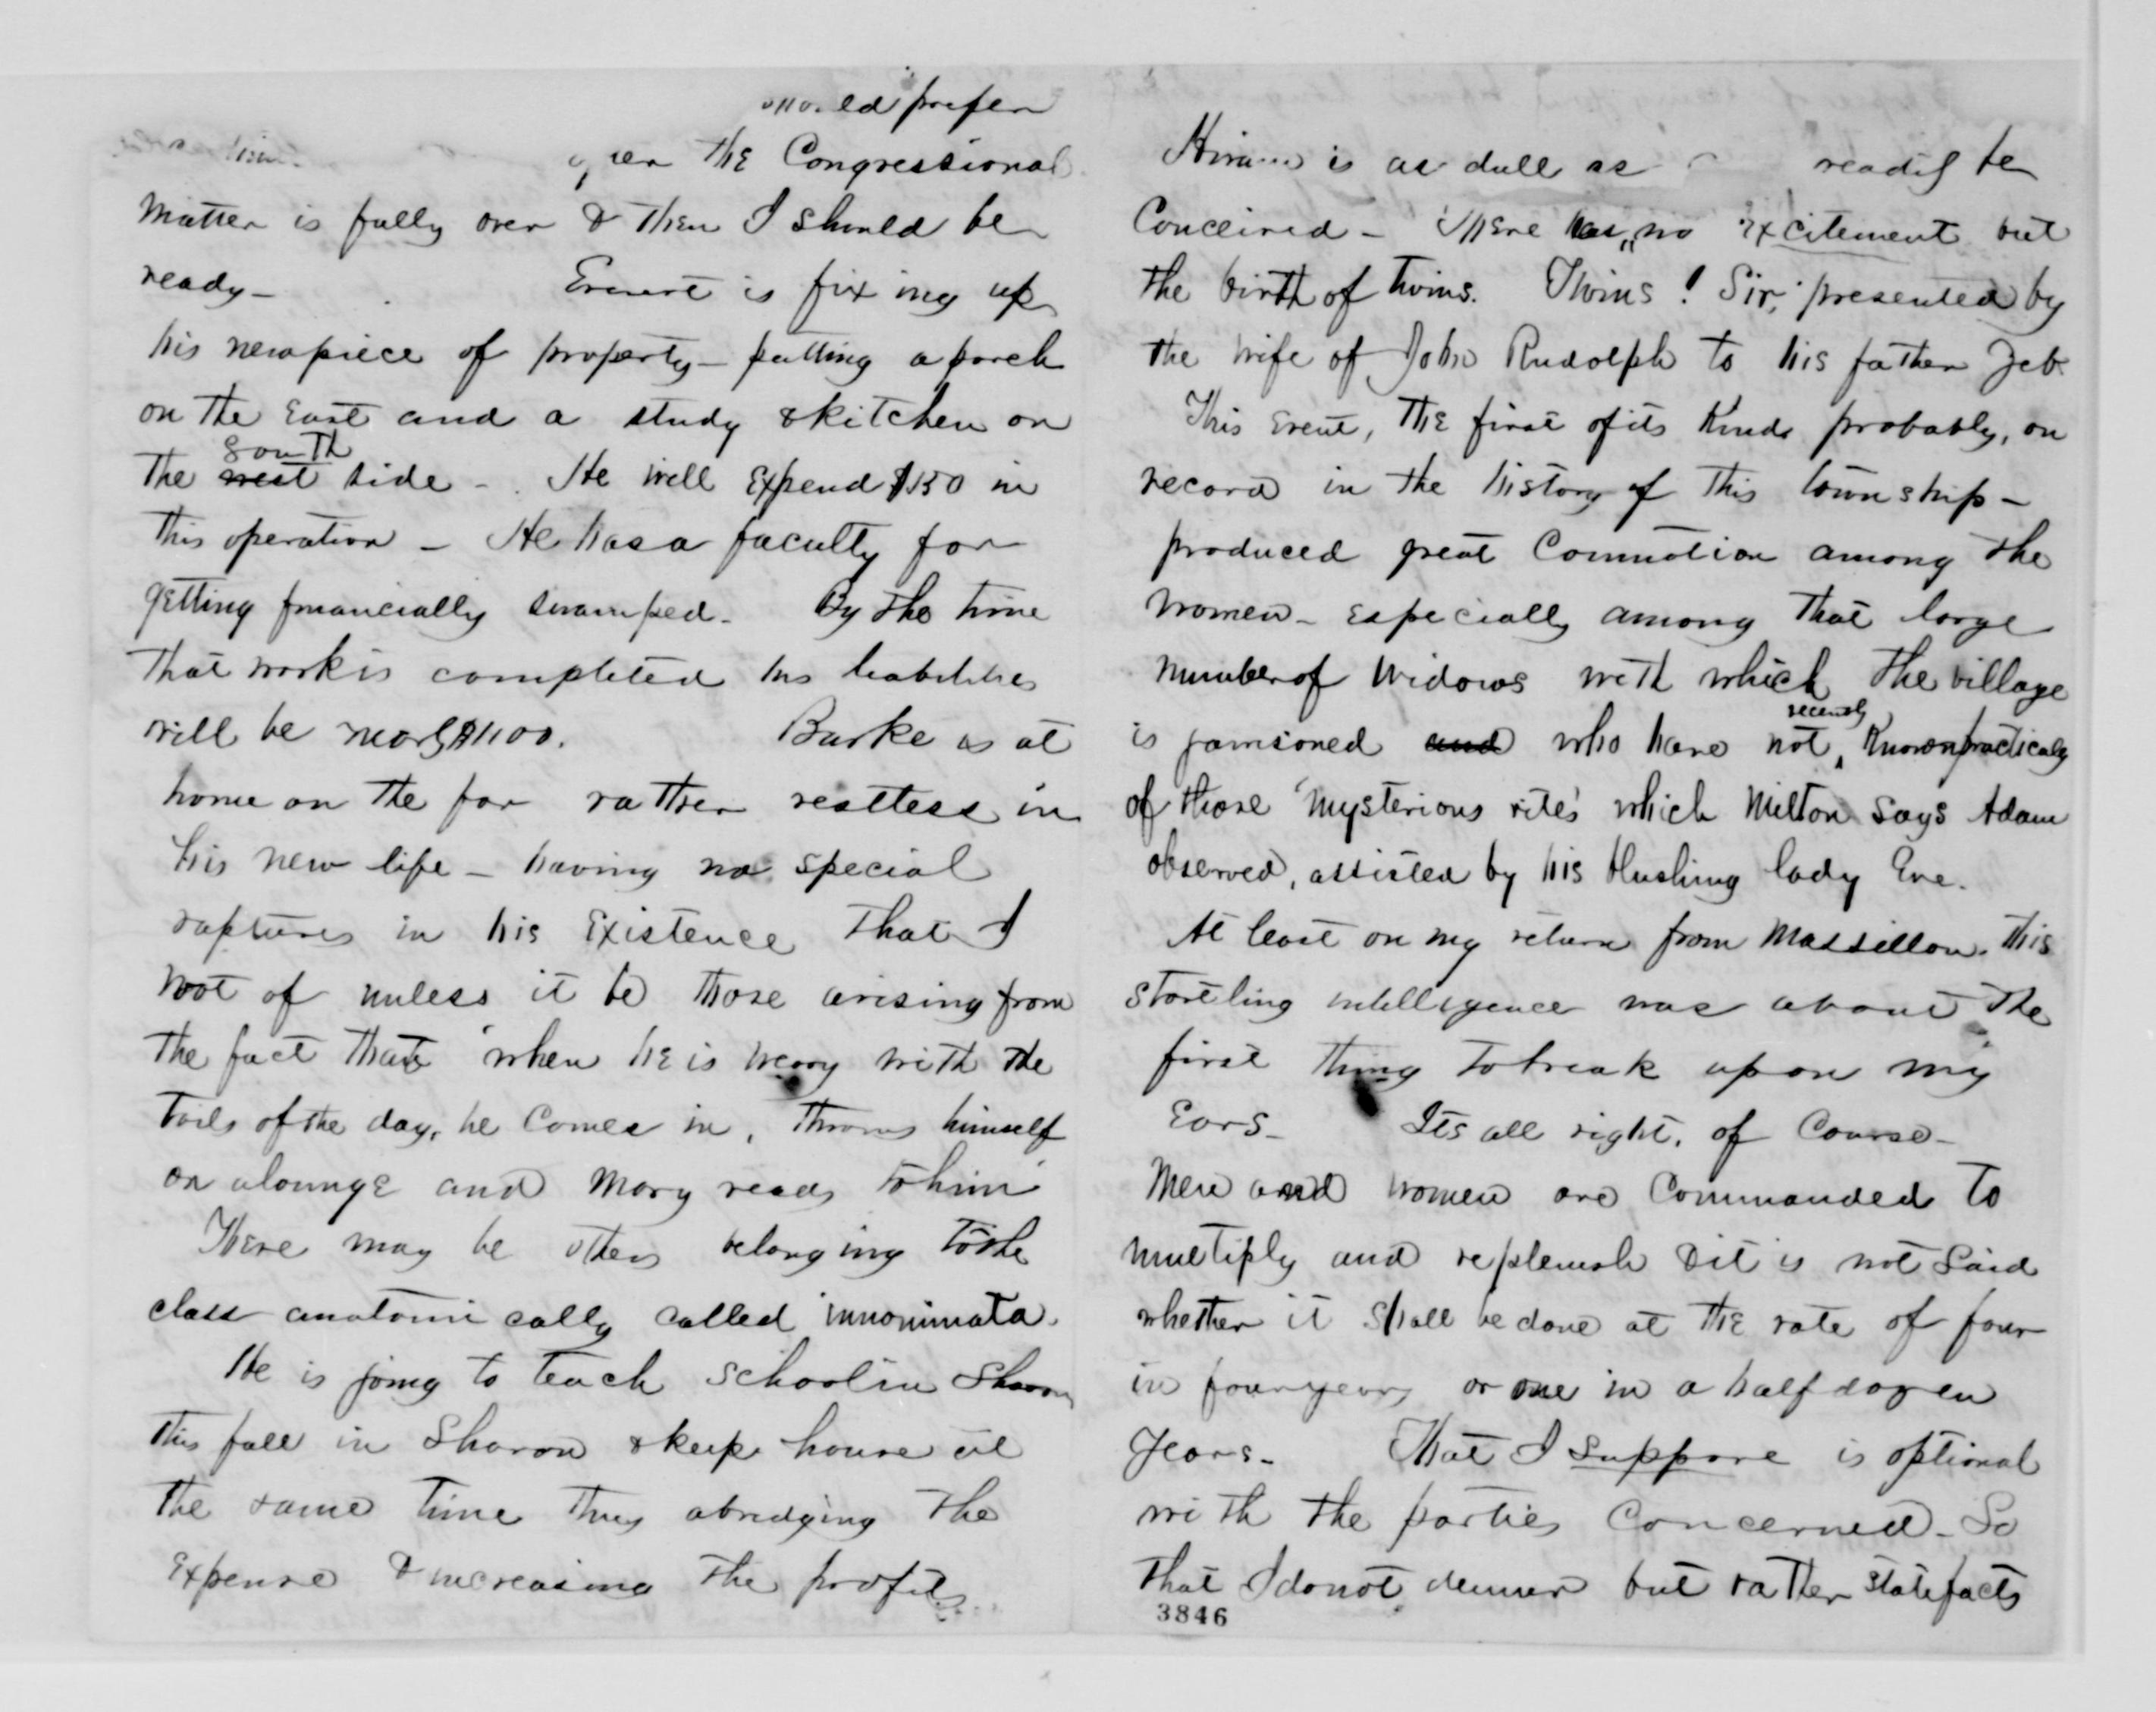 would prefer
the Congressional
matter is fully over & then I should be
ready- Everett is fixing up
his new piece of property- putting a porch
on the East and a study & kitchen on
south
the west side -. He will Expend $150 in
this operation - He has a faculty for
getting financially swamped- By the time
that work is completed his liabilities
will be nearly $1100. Burke is at
home on the far rather restless in
his new life - having no special
raptures in his Existence that I
wot of unless it be those arising from
the fact that "when he is weary with the
toils of the day, he comes in, throws himself
on a lounge and Mary reads to him"
There may be others belonging to the
class anatomically called innominata.
He is going to teach school in Sharon
this fall in Sharon & keep house at
the same time thus abridging the
Expense & increasing the profits
Hiram is as dull as readily be
Conceived - There has no excitement but
the birth of twins. Twins! Sir, presented by
the wife of John Rudolph to his father Zeb.
This Event, the first of its kind probably, on
record in the history of this township-
produced great Commotion among the
women- Especially among that large
number of widows with which the village
recently
is garrisoned and who have not, known practically
of those "mysterious rites" which Milton says Adam
observed, assisted by his blushing lady Eve.
At least on my return from Massillon. this
startling intelligence was about the
first thing to break upon my
Ears- Its all right, of Course-
Men and women are Commanded to
multiply and replenish & it is not said
whether it shall be done at the rate of four
in four years or one in a half dozen
years- That I suppose is optional
with the parties Concerned- So
that I do not demur but rather state facts
3846